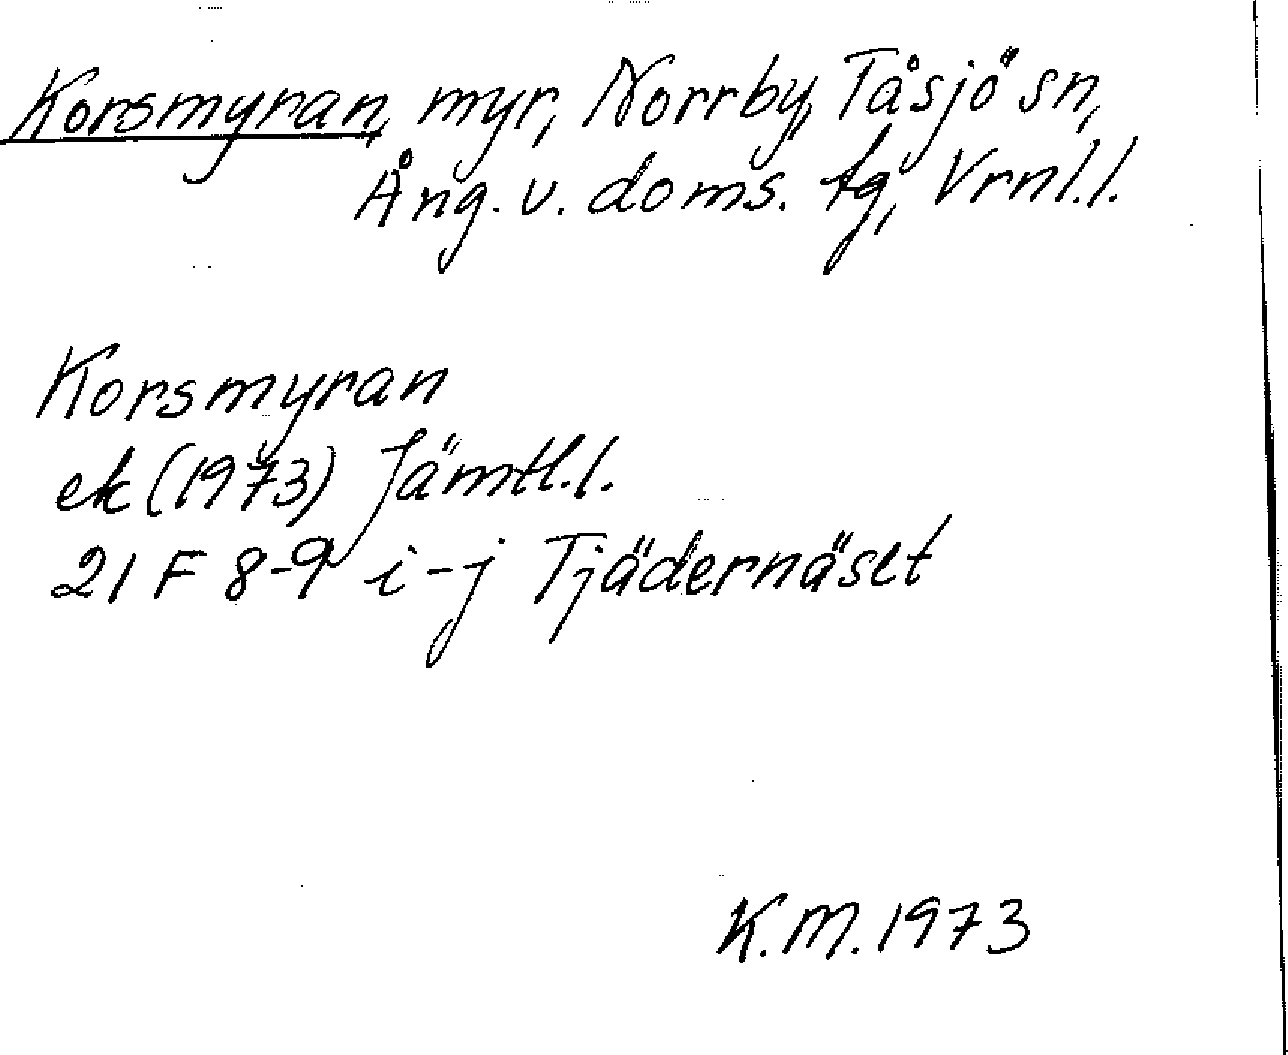 Korsmyran, myr, Norrby, Tåsjö sn,
Ång. v. doms. tg, Vrnl.l.
Korsmyran
ek (1973) Jämtl.l.
21 F 8-9 i-j Tjädernäset
K.M. 1973